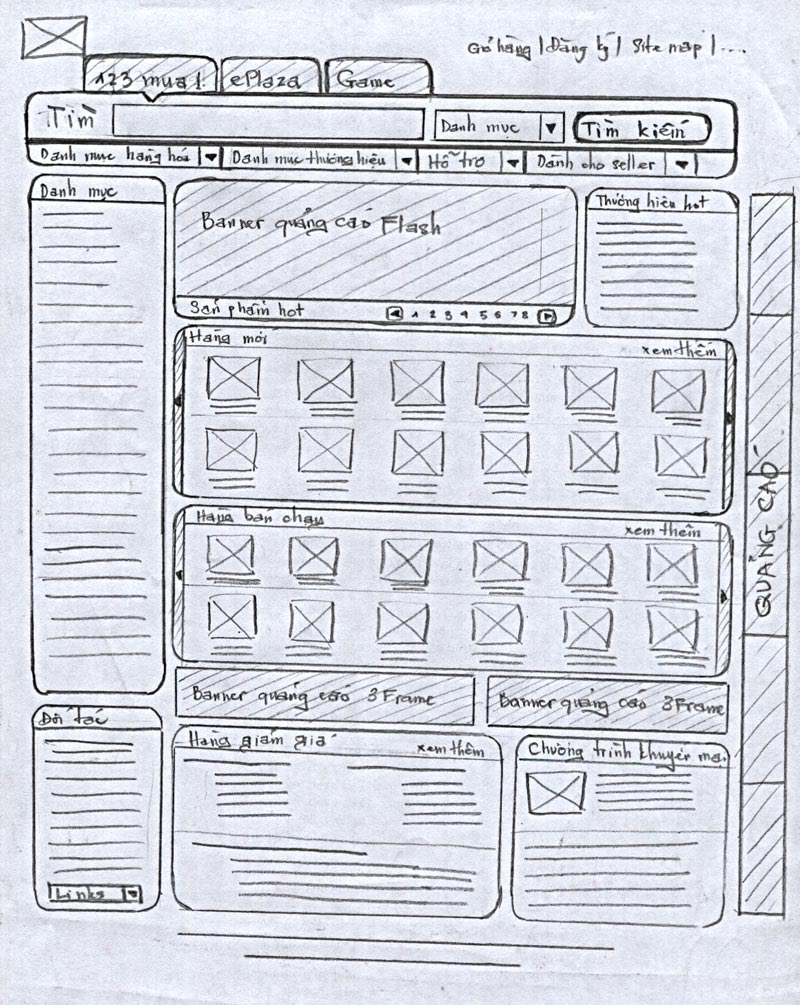 Giỏ hàng | Đăng ký | Site map | ....
123 mua! ePlaza Game
Tìm Danh mục Tìm kiếm
Danh mục hàng hoá Danh mục thương hiệu Hỗ trợ Dành cho seller
Danh mục
Banner quảng cáo Flash
Thương hiệu hot
Sản phẩm hot 1 2 3 4 5 6 7 8
Hàng mới xem thêm
Hàng bán chạy xem thêm
QUẢNG CÁO
Banner quảng cáo 3 Frame Banner quảng cáo 3 Frame
Đối tác
Hàng giảm giá xem thêm
Chương trình khuyến mã.
Links